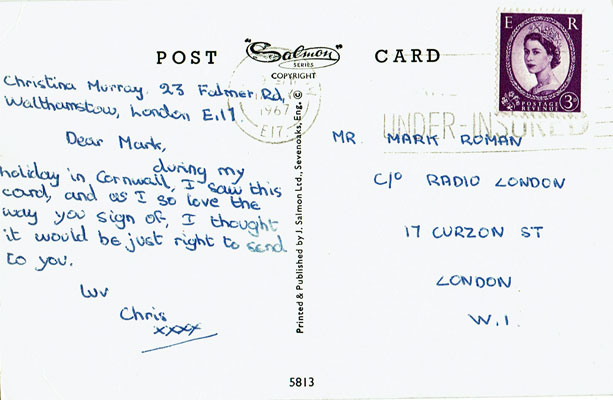 POST "Salmon" CARD
SERIES
COPYRIGHT
E R
POSTAGE
REVENUE
3D
1967
E17
UNDER-INSURED
Christina Murray. 23 Falmer Rd,
Walthamstow, London E.17.
Dear Mark,
during my
holiday in Cornwall, I saw this
card, and as I so love the
way you sign of, I thought
it would be just right to send
to you.
luv
Chris
xxxx
Printed & Published by J. Salmon Ltd., Sevenoaks, Eng. ©
MR MARK ROMAN
C/O RADIO LONDON
17 CURZON ST
LONDON
W.1.
5813